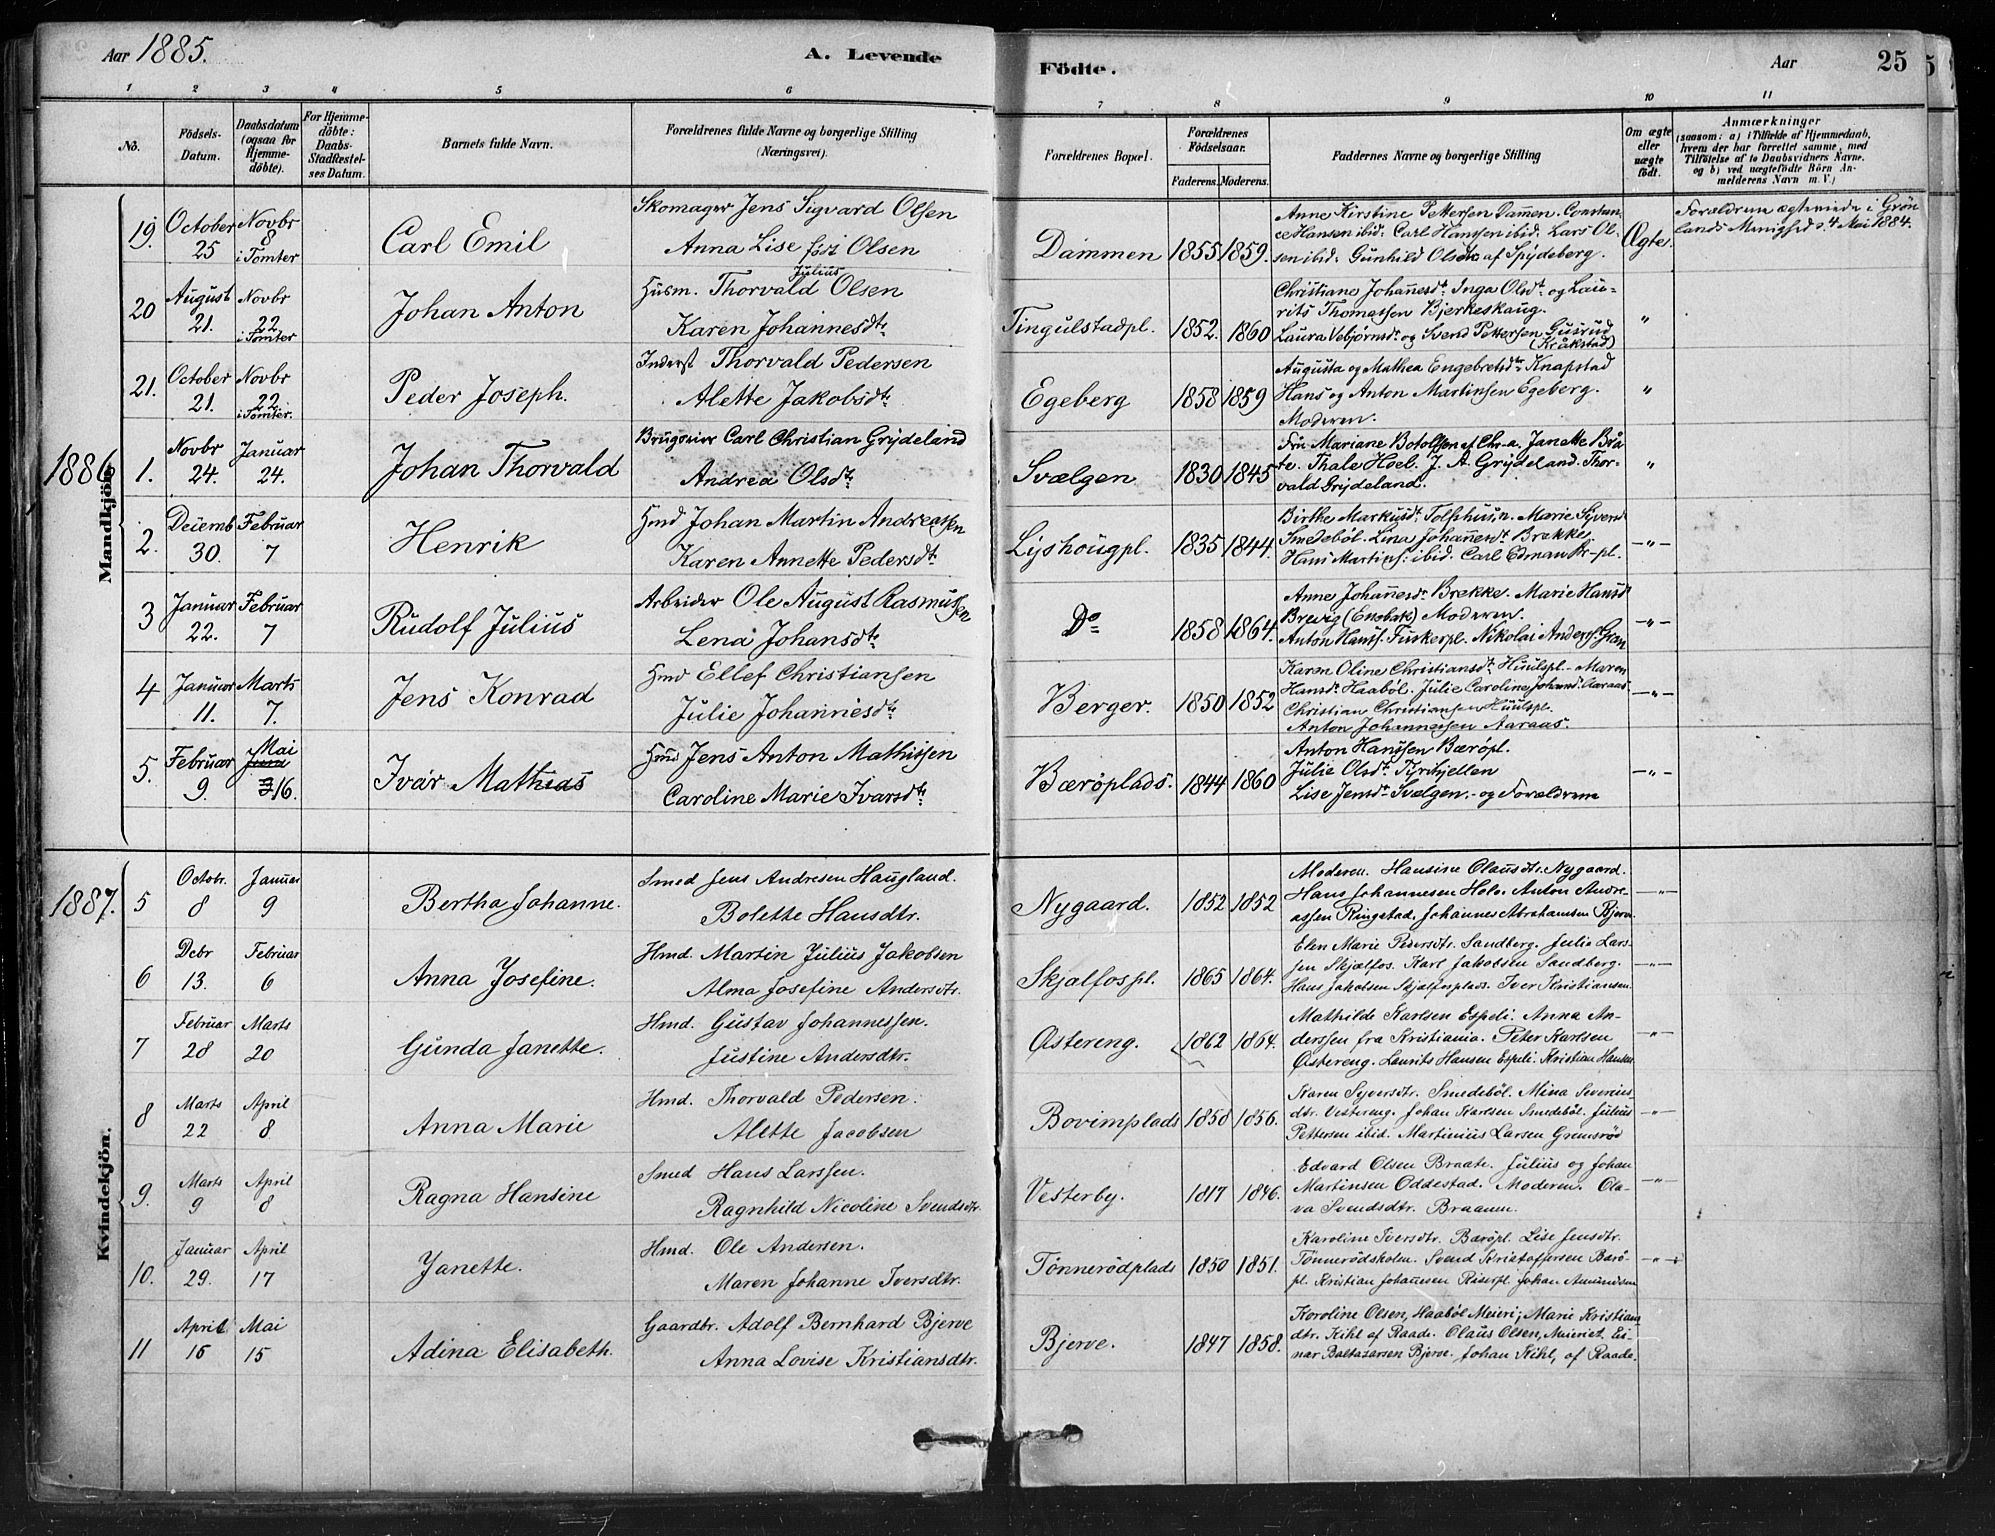 Aar 1885.
A. Levende
Födte.
Aar
25
1
2
3
4
5
6
7
8
9
10
11
No.
Födsels-
Datum.
Daabsdatum
(ogsaa for
Hjemme-
döbte).
For Hjemme-
döbte:
Daabs-
Stadfæstel-
ses Datum.
Barnets fulde Navn.
Forældrenes fulde Navne og borgerlige Stilling
(Næringsvei).
Forældrenes Bopæl.
Forældrenes
Födselsaar.
Faderens.
Moderens.
Faddernes Navne og borgerlige Stilling
Om ægte
eller
uægte
födt.
Anmærkninger
(saasom: a) i Tilfælde af Hjemmedaab,
hvem der har forrettet samme, med
Tilföielse af to Daabsvidners Navne,
og b) ved uægtefödte Börn An-
melderens Navn m. V.)
Mandkjön.
19.
October
25
Novbr
8
i Tomter
Carl Emil
Skomager Jens Sigvard Olsen
Anna Lise født Olsen
Dammen
1855
1859.
Anne Kirstine Pettersen Dammen. Constan-
ce Hansen ibid. Carl Hanssen ibid. Lars Ol-
sen ibid. Gunhild Olsdtr af Spydeberg.
Ægte.
Forældrene ægteviede i Grøn
lands Menighed d. 4 Mai 1884.
20
August
21.
Novbr
22
i Tomter
Johan Anton
Julius
Husm. Thorvald Olsen
Karen Johannesdtr
Tingulstadpl.
1852.
1860
Christiane Johannesdtr. Inga Olsdtr. og Lau-
rits Thomassen Bjerkeskaug.
Laura Vebjørnsdtr og Svend Pettersen Gusrud
(Kråkstad)
"
21.
October
21.
Novbr
22
i Tomter.
Peder Joseph.
Inderst Thorvald Pedersen
Alette Jakobsdtr
Egeberg
1858
1859
Augusta og Mathea Engebretsdtr Knapstad
Hans og Anton Martinsen Egeberg.
Moderen.
"
1886
1.
Novbr
24.
Januar
24.
Johan Thorvald
Carl Christian Grydeland
Andrea Olsdtr
Svælgen
1830
1845
Fru Mariane Botolfsen af Chr-a. Janette Brå-
te. Thale Hoel. J. A. Grydeland. Thor-
vald Grydeland.
"
2.
Decemb
30.
Februar
7
Henrik
Hmd Johan Martin Andreassen
Karen Annette Pedersdtr
Lyshougpl.
1835
1844.
Birthe Markusdtr. Marie Syversd
Smedebøl. Lina Johannesdtr Brække
Hans Martins: ibid. Carl Edman Br-pl.
–"–
3
Januar
22.
Februar
7
Rudolf Julius
Arbeider Ole August Rasmussen
Lena Johansdtr
Do
1858
1864.
Anne Johannesdtr Brekke. Marie Hansdtr
Brevig (Enebak) Moderen.
Anton Hanss. Nikolai Anderss. Gran
–"–
4
Januar
11.
Marts
7.
Jens Konrad
Hmd Ellef Christiansen
Julie Johannesdtr
Berger.
1850
1852
Karen Oline Christiansdtr Huulspl. Maren
Hansdtr Haabøl. Julie Caroline Johansd. Aaraas.
Christian Christiansen Huulspl.
Anton Johannessen Aaraas.
–"–
5.
Februar
9.
Mai
16.
Ivar Mathias
Hmd Jens Anton Mathissen
Caroline Marie Ivarsdtr
Bærøplads.
1844
1860
Anton Hanssen Bærøpl.
Julie Olsdtr Tyrihjellen
Lise Jensdtr Svælgen. og Forældrene
–"–
Kvindekjön.
1887.
5
Octobr.
8
Januar
9
Bertha Johanne.
Smed Jens Andresen Haugland.
Bolette Hansdtr.
Nygaard.
1852
1852
Moderen. Hansine Olausdtr. Nygaard.
Hans Johannesen Holo. Anton Andre-
assen Ringstad. Johannes Abrahamsen Bjerve
–"–
6
Debr
13.
Februar
6
Anna Josefine.
Hmd. Martin Julius Jakobsen
Alma Josefine Andersdtr.
Skjælfospl.
1865
1864.
Elen Marie Pedersdtr. Sandberg. Julie Lars-
sen Skjælfos. Karl Jakobsen Sandberg.
Hans Jakobsen Skjælfosplads. Iver Kristiansen
–"–
7
Februar
28
Marts
20
Gunda Janette.
Hmd. Gustav Johannessen.
Justine Andersdtr.
Østereng.
1862
1864.
Mathilde Karlsen Espeli. Anna An-
derssen fra Kristiania. Peter Karlsen
Østereng. Laurits Hansen Espeli. Kristian Hansen
–"–
8
Marts
22
April
8
Anna Marie
Hmd. Thorvald Pedersen.
Alette Jacobsen
Bovimplads
1858
1856.
Karen Syversdtr. Smedebøl. Mina Severins-
dtr. Vestereng. Johan Karlsen Smedebøl. Julius
Pettersen ibid. Martinius Larsen Gremsrød
–"–
9.
Marts
9
April
8
Ragna Hansine
Smed Hans Larssen.
Ragnhild Nicoline Svendsdtr.
Vesterby.
1817
1846.
Edvard Olsen Braate. Julius og Johan
Martinsen Oddestad. Moderen. Ola-
va Svendsdtr. Braanen.
–"–
10.
Januar
29.
April
17
Janette.
Hmd. Ole Andersen.
Maren Johanne Iversdtr.
Tønnerødplads
1850
1851.
Karoline Iversdtr. Bærøpl. Lise Jensdtr.
Tønnerødskolen. Svend Kristoffersen Bærø-
pl. Kristian Johannesen Riserpl. Johan Amundsen
–"–
11
April
16
Mai
15
Adina Elisabeth.
Gaardbr. Adolf Bernhard Bjerve
Anna Lovise Kristiansdtr.
Bjerve.
1847
1858.
Karoline Olsen, Haabøl Meieri; Marie Kristians
dtr. Kihl af Raade. Olaus Olsen, Meieriet. Ei-
nar Baltazarsen Bjerve. Johan Kihl, af Raade.